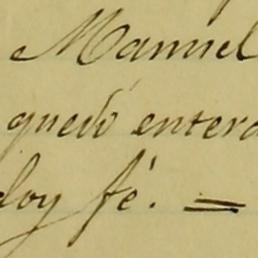 Manuel
quedó entera
doy fé. =